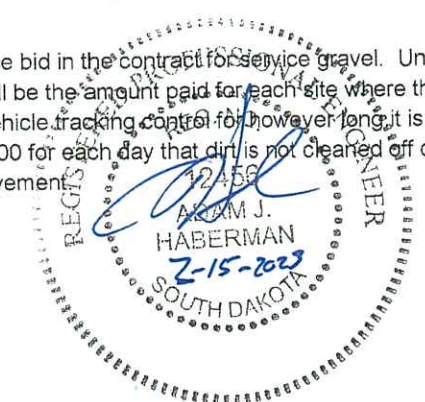 e bid in the contract for service gravel. Un
ll be the amount paid for each site where th
ehicle tracking control for however long it is
00 for each day that dirt is not cleaned off o
vement.
REGISTERED PROFESSIONAL ENGINEER
REG. NO.
12456
ADAM J.
HABERMAN
2-15-2023
SOUTH DAKOTA